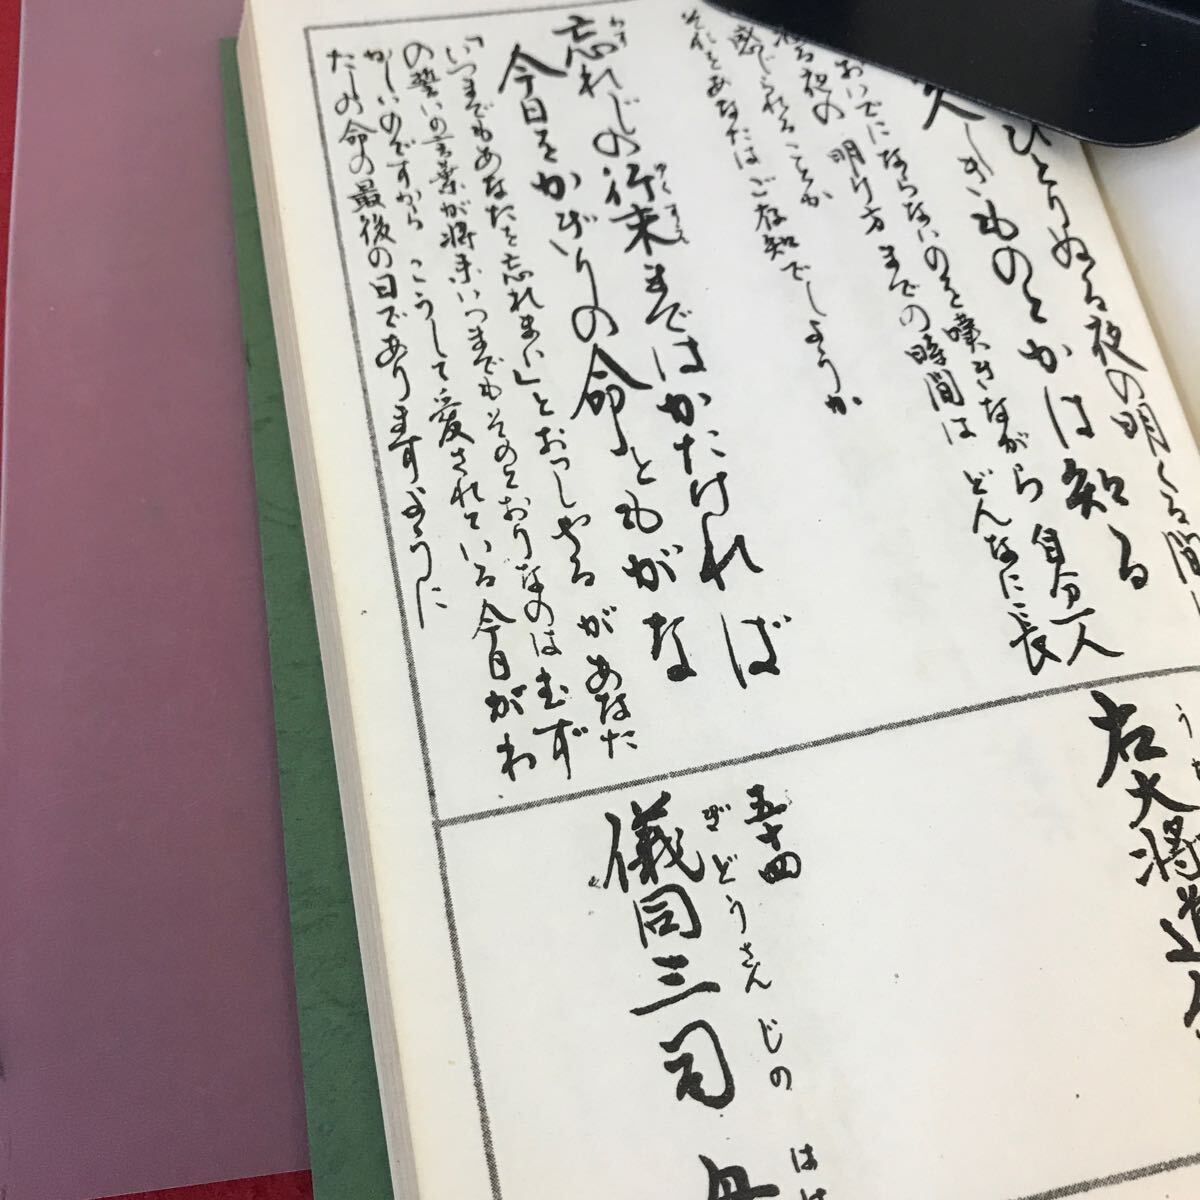 ひとりぬる夜の明くる間は
久しきものとかは知る
おいでにならないのを嘆きながら 自分一人
寝る夜の 明け方までの時間は どんなに長
感じられることか
それをあなたはご存知でしょうか
右大将道
忘れじの行末まではかたければ
わす
ゆくすえ
今日をかぎりの命ともがな
「いつまでもあなたを忘れまい」とおっしゃるが あなた
の誓いの言葉が将来いつまでもそのとおりなのはむず
かしいのですから こうして愛されている今日がわ
たしの命の最後の日でありますように
五十四
ぎどうさんじの はは
儀同三司 母